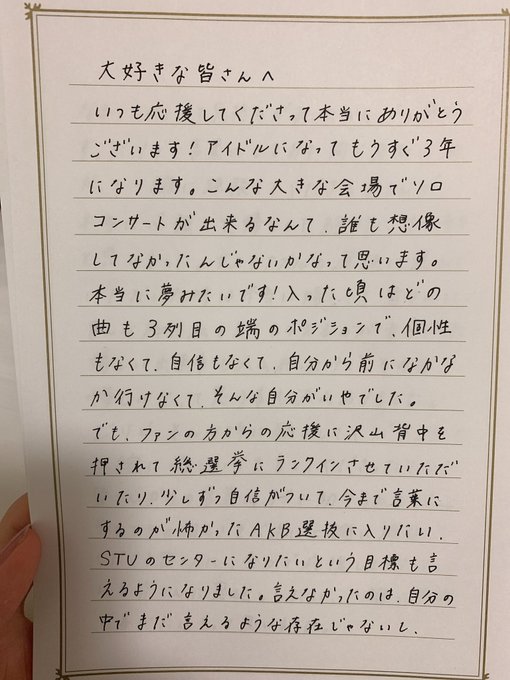 大好きな皆さんへ
いつも応援してくださって本当にありがとう
ございます!アイドルになってもうすぐ3年
になります。こんな大きな会場でソロ
コンサートが出来るなんて、誰も想像
してなかったんじゃないかなって思います。
本当に夢みたいです!入った頃はどの
曲も3列目の端のポジションで、個性
もなくて、自信もなくて、自分から前になかな
か行けなくて、そんな自分がいやでした。
でも、ファンの方からの応援に沢山背中を
押されて総選挙にランクインさせていただ
いたり、少しずつ自信がついて、今まで言葉に
するのが怖かったAKB選抜に入りたい、
STUのセンターになりたいという目標も言
えるようになりました。言えなかったのは、自分の
中でまだ言えるような存在じゃないし、